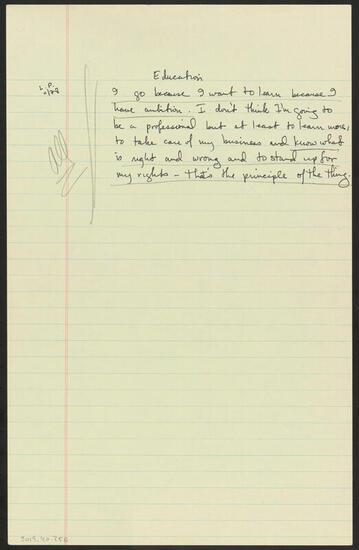 Education
I go because I want to learn because I
have ambition. I don't think I'm going to
be a professional but at least to learn more,
to take care of my business and know what
is right and wrong and to stand up for
my rights – that's the principle of the thing.
2015.40.256